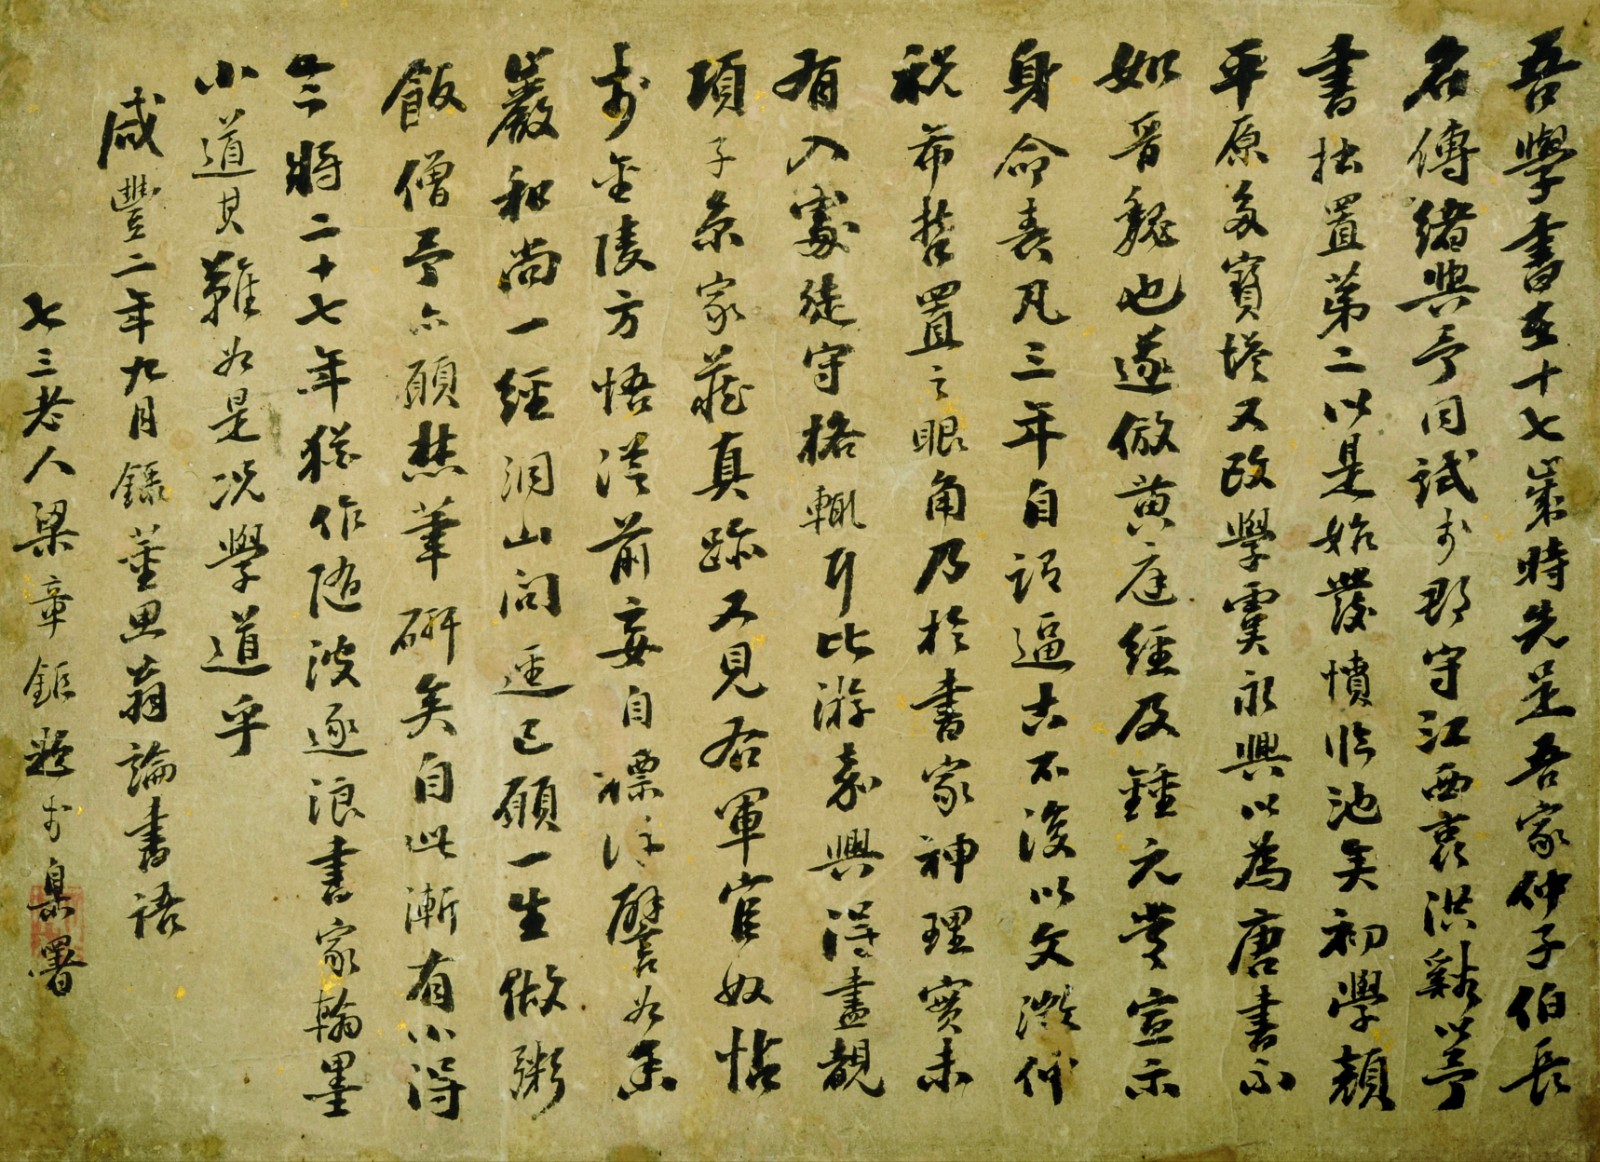 吾學書在十七歲時先是吾家仲子伯長
名傳緒與予同試於郡守江西袁洪谿以予
書拙置第二以是始發憤臨池矣初學顏
平原多寶塔又改學虞永興以為唐書不
如晉魏也遂倣黃庭經及鍾元常宣示
身命表凡三年自謂逼古不復以文徵仲
祝希哲置之眼角乃於書家神理實未
有入處徒守格轍耳比游嘉興得盡覩
項子京家藏真跡又見右軍官奴帖
於金陵方悟從前妄自標許譬如香
巖和尚一經洞山問逕已願一生做粥
飯僧予亦願焚筆硏矣自此漸有小得
今將二十七年猶作隨波逐浪書家翰墨
小道其難如是況學道乎
咸豐二年九月錄董思翁論書語
七三老人梁章鉅題於臬署